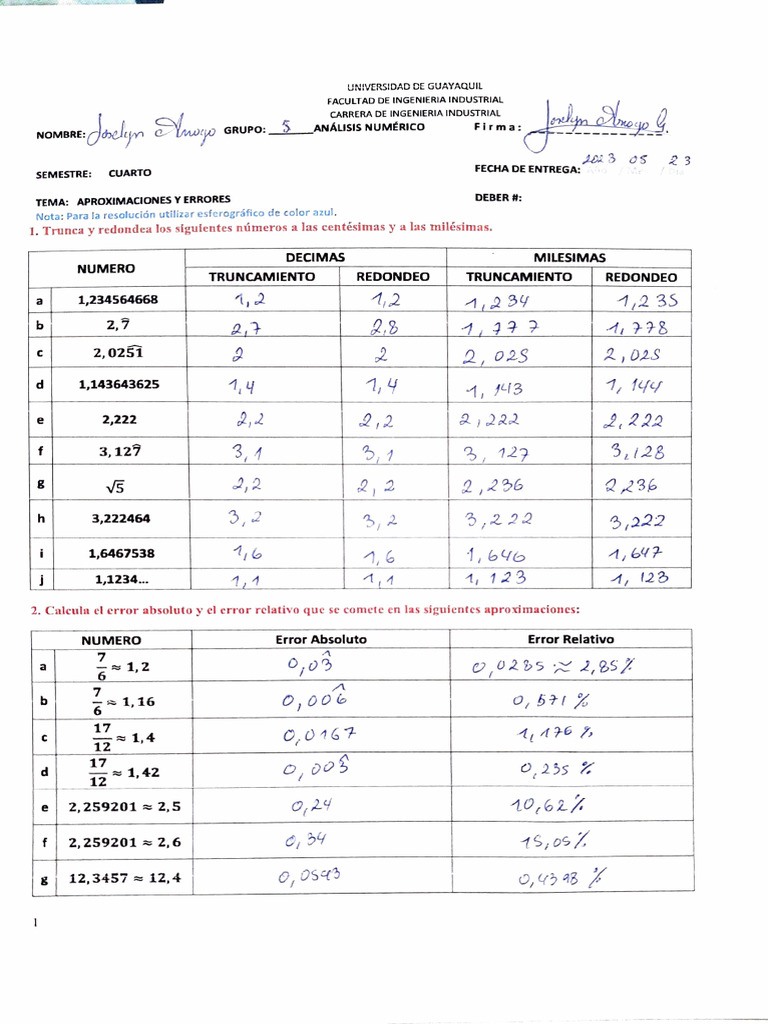 UNIVERSIDAD DE GUAYAQUIL
FACULTAD DE INGENIERIA INDUSTRIAL
CARRERA DE INGENIERIA INDUSTRIAL
NOMBRE: Joselyn Arroyo GRUPO: 5 ANÁLISIS NUMÉRICO Firma: Joselyn Arroyo G.
SEMESTRE: CUARTO FECHA DE ENTREGA: 2023 05 23
TEMA: APROXIMACIONES Y ERRORES DEBER #:
Nota: Para la resolución utilizar esferográfico de color azul.
1. Trunca y redondea los siguientes números a las centésimas y a las milésimas.
NUMERO DECIMAS MILESIMAS
TRUNCAMIENTO REDONDEO TRUNCAMIENTO REDONDEO
a 1,234564668 1,2 1,2 1,234 1,235
b 2,7̂ 2,7 2,8 1,777 1,778
c 2,0251̂ 2 2 2,025 2,025
d 1,143643625 1,4 1,4 1,143 1,144
e 2,222 2,2 2,2 2,222 2,222
f 3,127̂ 3,1 3,1 3,127 3,128
g √5 2,2 2,2 2,236 2,236
h 3,222464 3,2 3,2 3,222 3,222
i 1,6467538 1,6 1,6 1,646 1,647
j 1,1234... 1,1 1,1 1,123 1,123
2. Calcula el error absoluto y el error relativo que se comete en las siguientes aproximaciones:
NUMERO Error Absoluto Error Relativo
a 7/6 ≈ 1,2 0,03̂ 0,0285 ≈ 2,85%
b 7/6 ≈ 1,16 0,006̂ 0,571 %
c 17/12 ≈ 1,4 0,0167 1,176 %
d 17/12 ≈ 1,42 0,003̂ 0,235 %
e 2,259201 ≈ 2,5 0,24 10,62%
f 2,259201 ≈ 2,6 0,34 15,05%
g 12,3457 ≈ 12,4 0,0543 0,4398 %
1